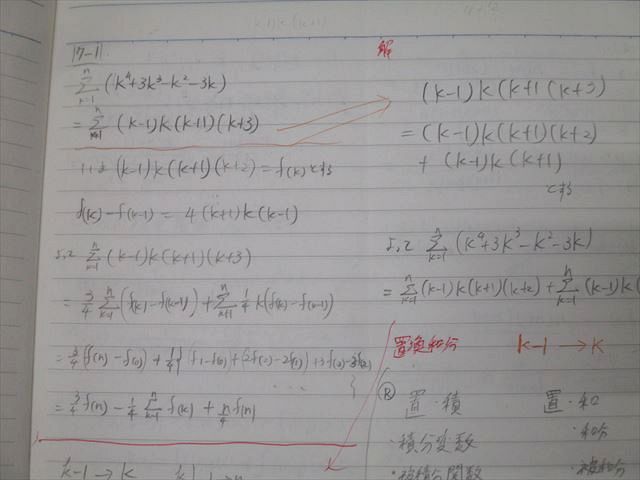 17-1
\sum_{k=1}^{n} (k^4+3k^3-k^2-3k)
= \sum_{k=1}^{n} (k-1)k(k+1)(k+3)
(k-1)k(k+1)(k+2) = f(k) とする
f(k)-f(k-1) = 4(k+1)k(k-1)
よって \sum_{k=1}^{n} (k-1)k(k+1)(k+3)
= \frac{3}{4} \sum_{k=1}^{n} (f(k)-f(k-1)) + \sum_{k=1}^{n} \frac{1}{4} k(f(k)-f(k-1))
= \frac{3}{4} (f(n)-f(0)) + \frac{1}{4} { (f(1)-f(0)) + (2f(2)-2f(1)) + 3f(3)-3f(2)
... }
= \frac{3}{4} f(n) - \frac{1}{4} \sum_{k=1}^{n} f(k) + \frac{n}{4} f(n)
k-1 → k
解
(k-1)k(k+1)(k+3)
= (k-1)k(k+1)(k+2)
+ (k-1)k(k+1)
とする
よって \sum_{k=1}^{n} (k^4+3k^3-k^2-3k)
= \sum_{k=1}^{n} (k-1)k(k+1)(k+2) + \sum_{k=1}^{n} (k-1)k(
置換和分 k-1 → k
置・積 置・和
・積分変数 ・和分
・被積分関数 ・被和分